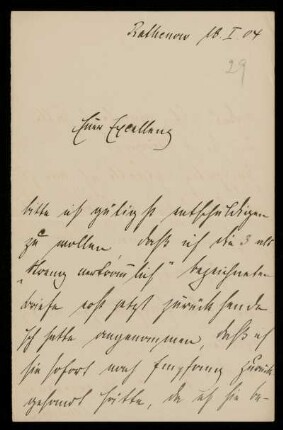 Rathenow 18. I 04
29
Euer Excellenz
bitte ich gütigst entschuldigen
zu wollen daß ich die 3 als
"streng vertraulich" bezeichneten
Briefe erst jetzt zurück sende
Ich hatte angenommen, daß ich
sie sofort nach Empfang zurück
gesandt hätte, da ich sie be-